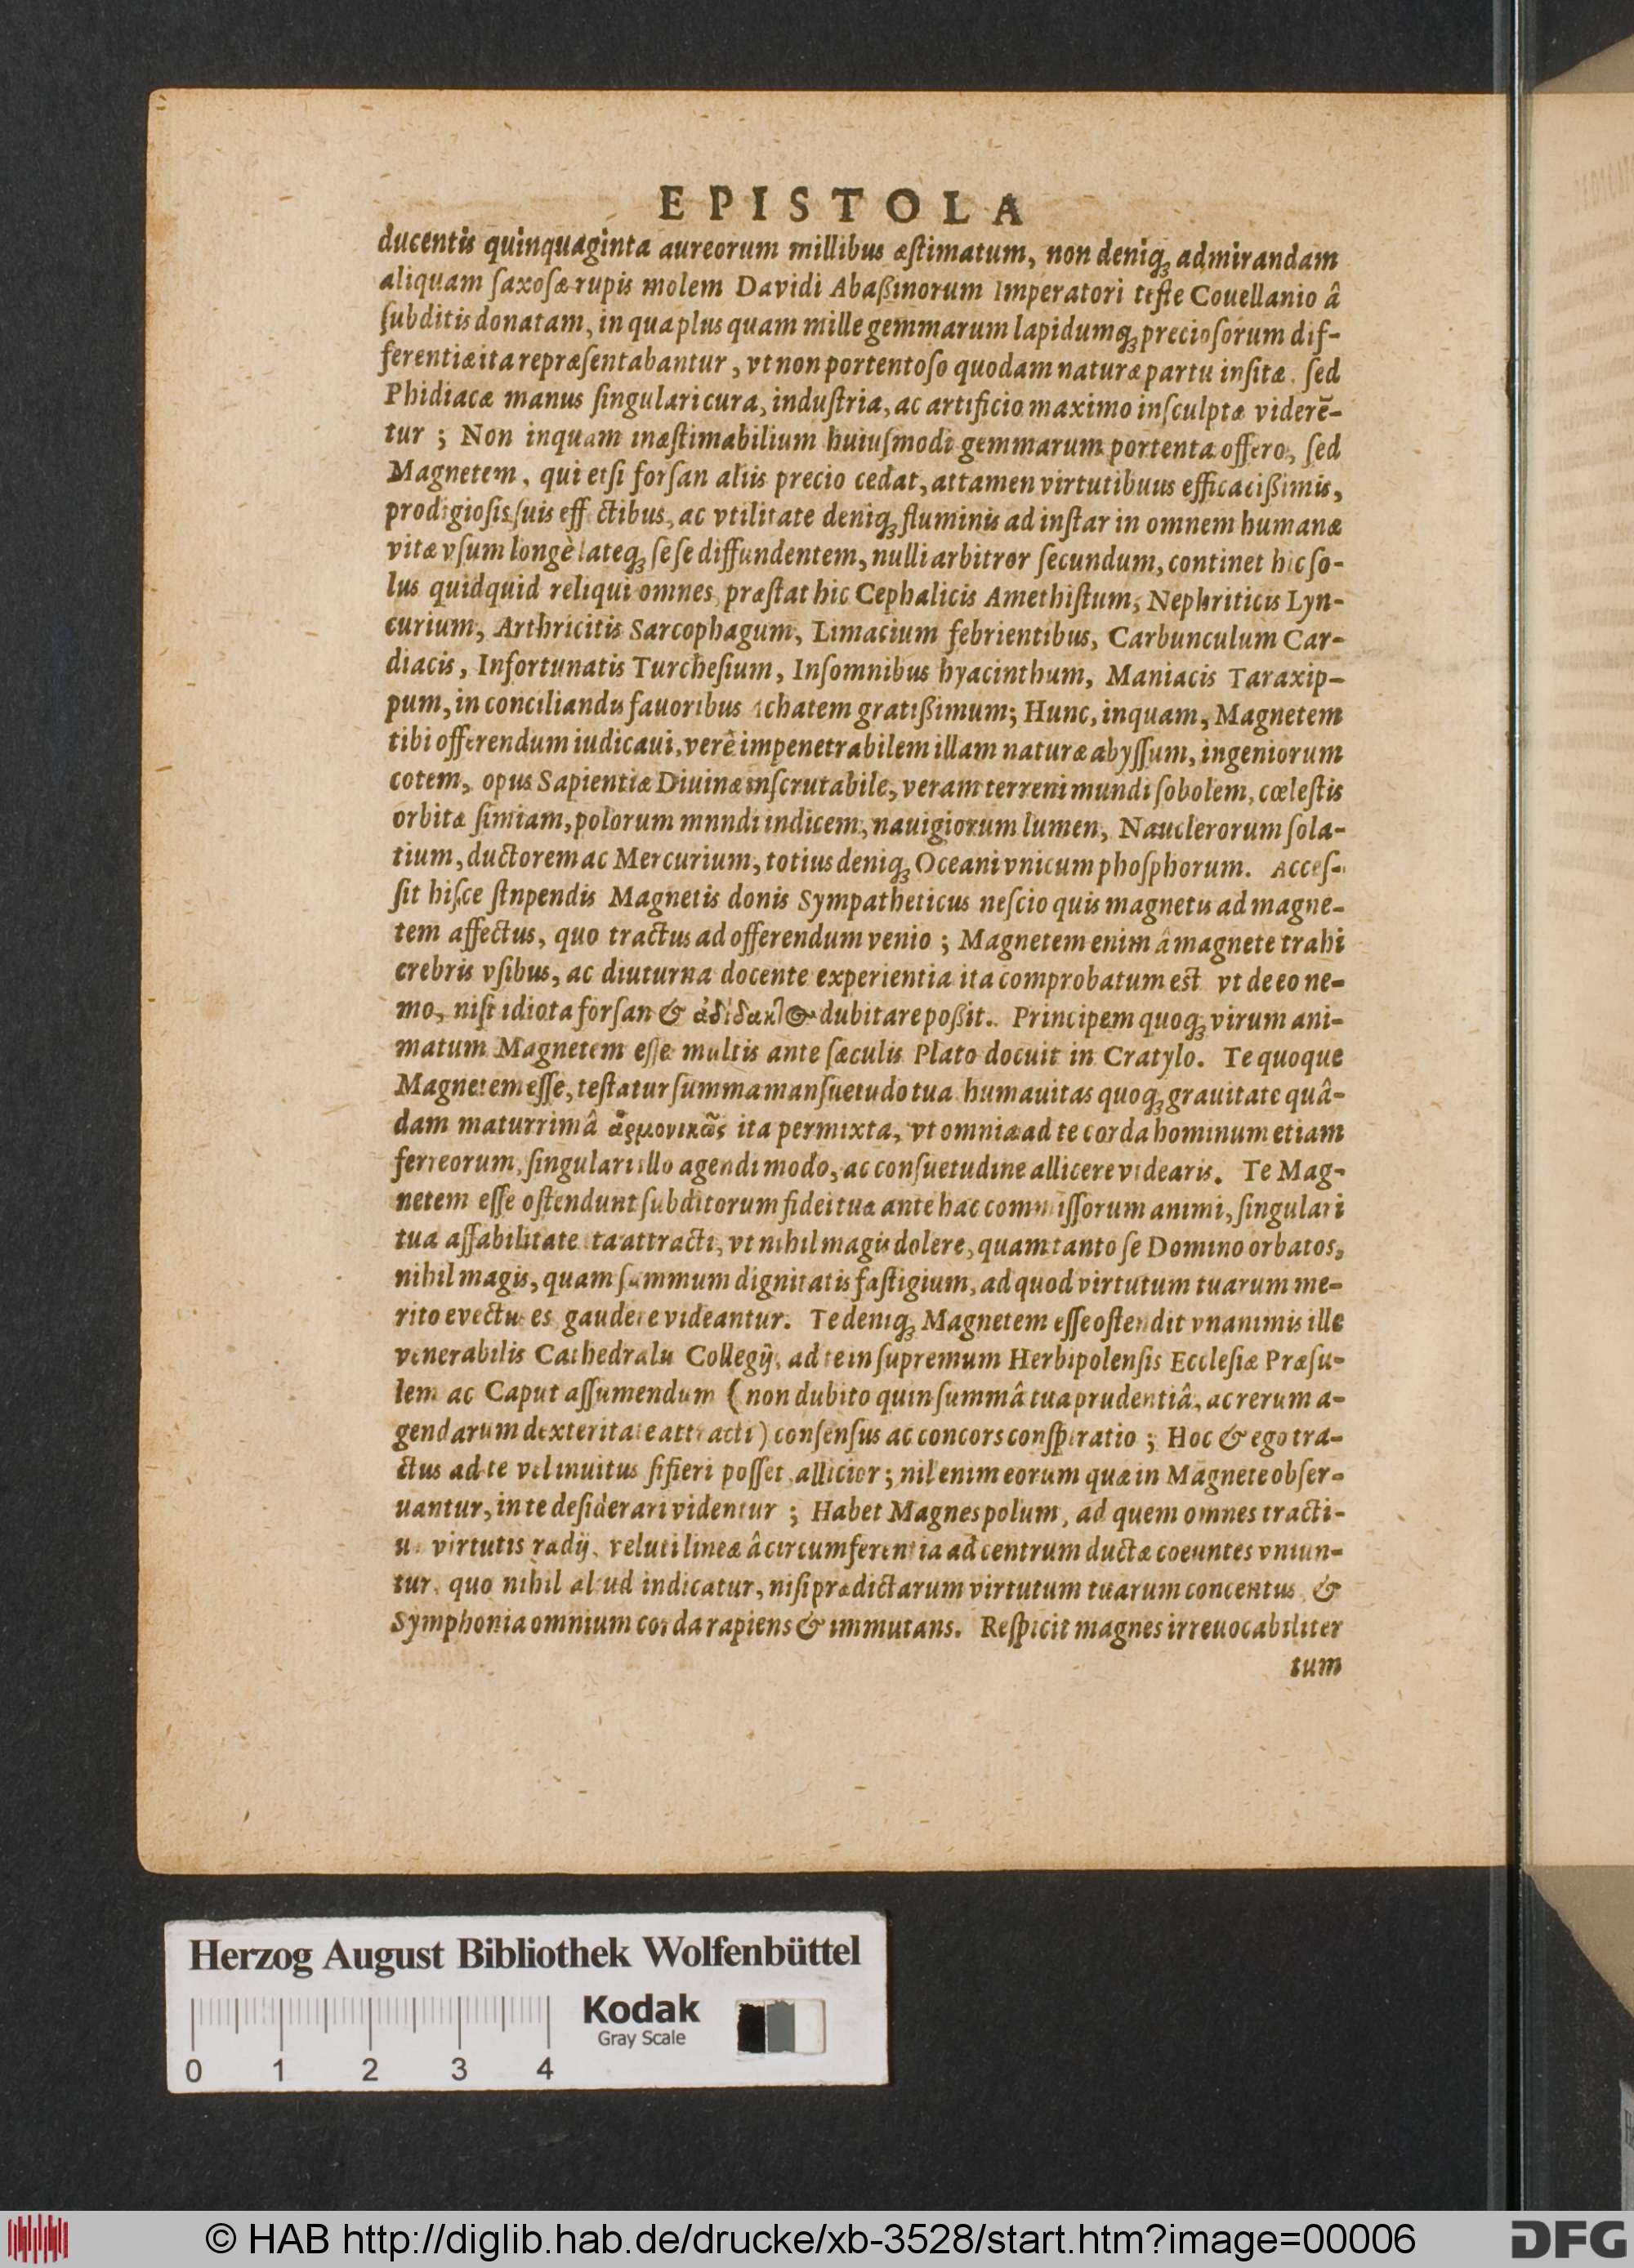 EPISTOLA
ducentis quinquaginta aureorum millibus æſtimatum, non deniqꝫ admirandam
aliquam ſaxoſæ rupis molem Davidi Abaßinorum Imperatori teſte Couellanio â
ſubditis donatam, in qua plus quam mille gemmarum lapidumqꝫ precioſorum dif-
ferentiæ ita repræſentabantur, vt non portentoſo quodam naturæ partu inſitæ. ſed
Phidiacæ manus ſingulari cura, induſtria, ac artificio maximo inſculptæ viderē-
tur; Non inquam inæſtimabilium huiuſmodi gemmarum portenta offero, ſed
Magnetem, qui etſi forſan aliis precio cedat, attamen virtutibuus efficacißimis,
prodigioſis ſuis eff ctibus, ac vtilitate deniqꝫ fluminis ad inſtar in omnem humanæ
vitæ vſum longè lateqꝫ ſeſe diffundentem, nulli arbitror ſecundum, continet hic ſo-
lus quidquid reliqui omnes, præſtat hic Cephalicis Amethiſtum, Nephriticis Lyn-
curium, Arthricitis Sarcophagum, Limacium febrientibus, Carbunculum Car-
diacis, Infortunatis Turcheſium, Inſomnibus hyacinthum, Maniacis Taraxip-
pum, in conciliandis fauoribus Achatem gratißimum; Hunc, inquam, Magnetem
tibi offerendum iudicaui, verê impenetrabilem illam naturæ abyſſum, ingeniorum
cotem, opus Sapientiæ Diuinæ inſcrutabile, veram terreni mundi ſobolem, cœleſtis
orbitæ ſimiam, polorum mnndi indicem, nauigiorum lumen, Nauclerorum ſola-
tium, ductorem ac Mercurium, totius deniqꝫ Oceani vnicum phoſphorum. Acceſ-
ſit hiſce ſtnpendis Magnetis donis Sympatheticus neſcio quis magnetis ad magne-
tem affectus, quo tractus ad offerendum venio; Magnetem enim â magnete trahi
crebris vſibus, ac diuturna docente experientia ita comprobatum est vt de eo ne-
mo, niſi idiota forſan & ἀδίδακτ⊙ dubitare poßit. Principem quoqꝫ virum ani-
matum Magnetem eſſe multis ante ſæculis Plato docuit in Cratylo. Te quoque
Magnetem eſſe, teſtatur ſumma manſuetudo tua humauitas quoqꝫ grauitate quâ-
dam maturrimâ ἁρμονικῶς ita permixta, vt omnia ad te corda hominum etiam
ferreorum, ſingulari illo agendi modo, ac conſuetudine allicere videaris. Te Mag-
netem eſſe oſtendunt ſubditorum fidei tuæ ante hac commiſſorum animi, ſingulari
tua affabilitate ita attracti, vt nihil magis dolere, quam tanto ſe Domino orbatos,
nihil magis, quam ſummum dignitatis faſtigium, ad quod virtutum tuarum me-
rito evectus es gaudere videantur. Te deniqꝫ Magnetem eſſe oſtendit vnanimis ille
venerabilis Cathedralis Collegij, ad te in ſupremum Herbipolenſis Eccleſiæ Præſu-
lem ac Caput aſſumendum (non dubito quin ſummâ tua prudentiâ, ac rerum a-
gendarum dexteritate attracti) conſenſus ac concors conſpiratio; Hoc & ego tra-
ctus ad te vel inuitus ſi fieri poſſet allicior; nil enim eorum quæ in Magnete obſer-
uantur, in te deſiderari videntur; Habet Magnes polum, ad quem omnes tracti-
ui virtutis radij, veluti lineæ â circumferentia ad centrum ductæ coeuntes vniun-
tur, quo nihil aliud indicatur, niſi prædictarum virtutum tuarum concentus, &
Symphonia omnium corda rapiens & immutans. Reſpicit magnes irreuocabiliter
tum
Herzog August Bibliothek Wolfenbüttel
Kodak
Gray Scale
0 1 2 3 4
© HAB http://diglib.hab.de/drucke/xb-3528/start.htm?image=00006
DFG